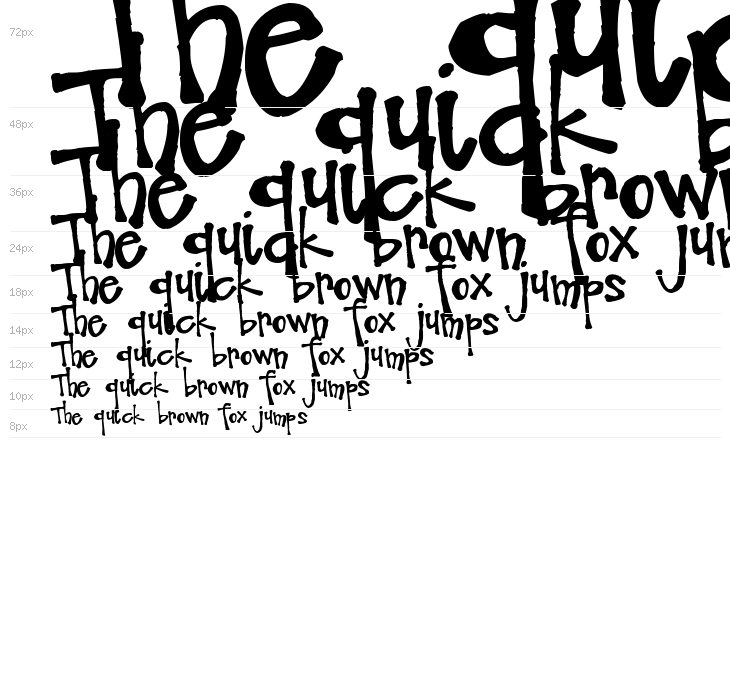 72px The quic
48px The quick b
36px The quick brown
24px The quick brown fox jum
18px The quick brown fox jumps
14px The quick brown fox jumps
12px The quick brown fox jumps
10px The quick brown fox jumps
8px The quick brown fox jumps